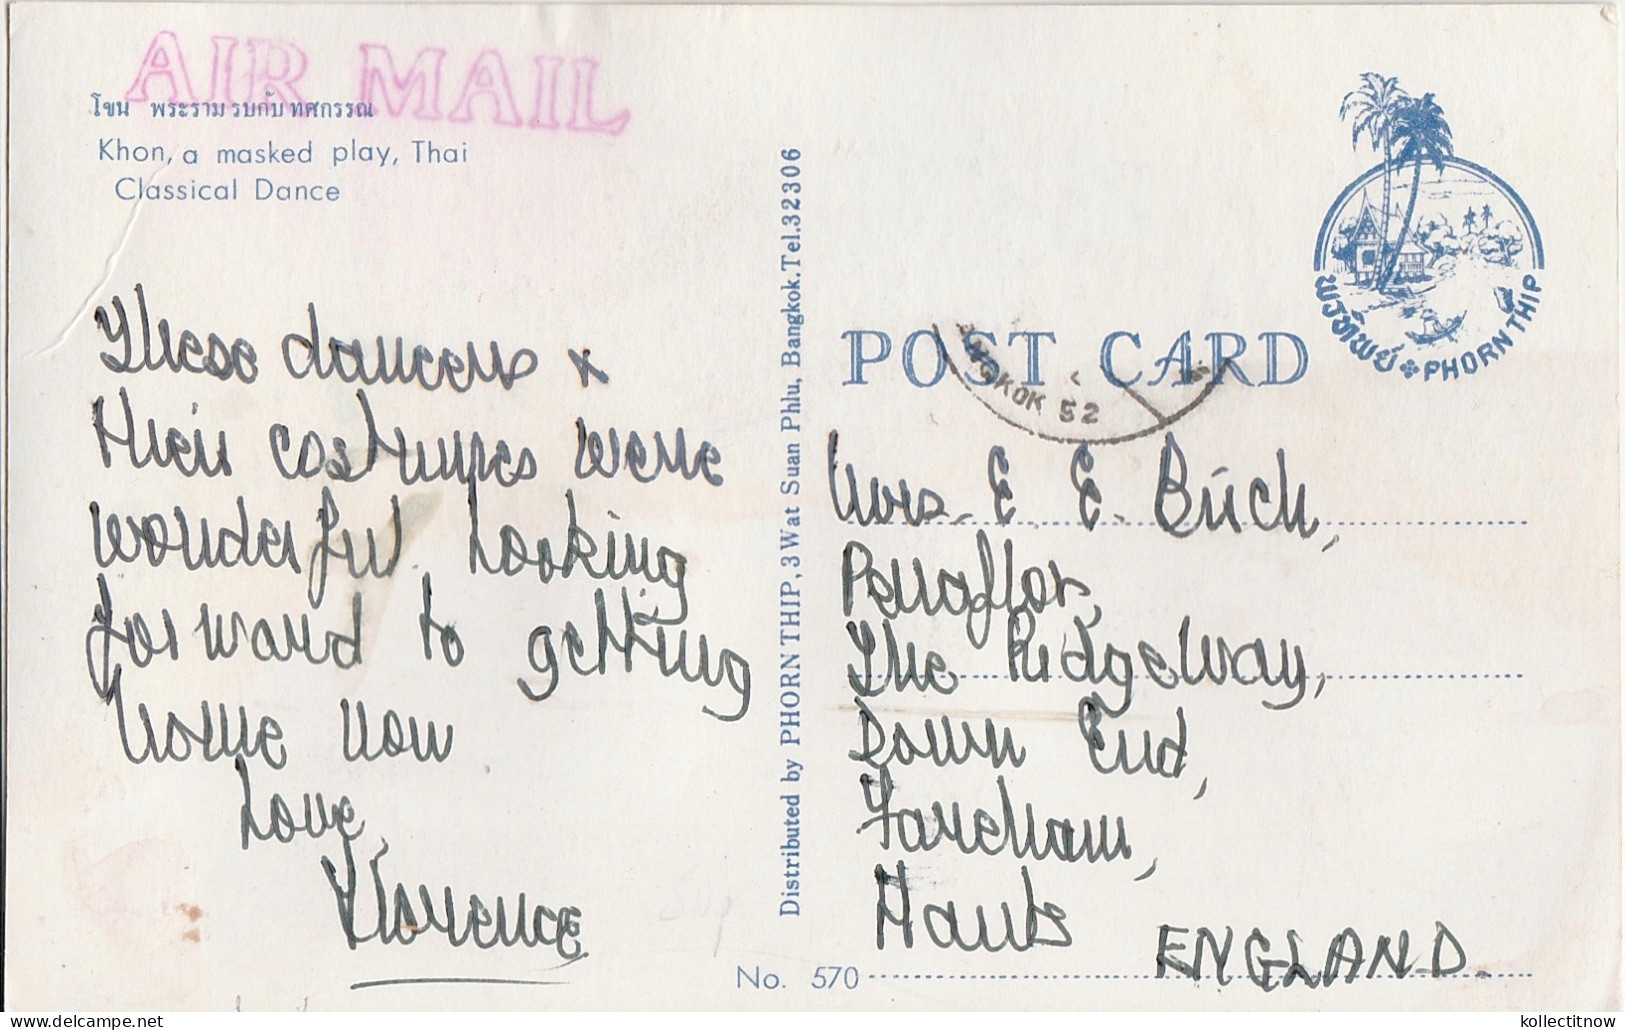 AIR MAIL
โขน พระราม รบกับ ทศกรรณ
Khon, a masked play, Thai
Classical Dance
These dancers &
their costumes were
wonderful. Looking
forward to getting
home now
Love,
Florence
Distributed by PHORN THIP, 3 Wat Suan Phlu, Bangkok. Tel. 32306
พรทิพย์ PHORN THIP
POST CARD
BANGKOK 52
Mrs. E. E. Birch,
Penaflor,
The Ridgeway,
Down End,
Fareham,
Hants
ENGLAND.
No. 570
kollectitnow